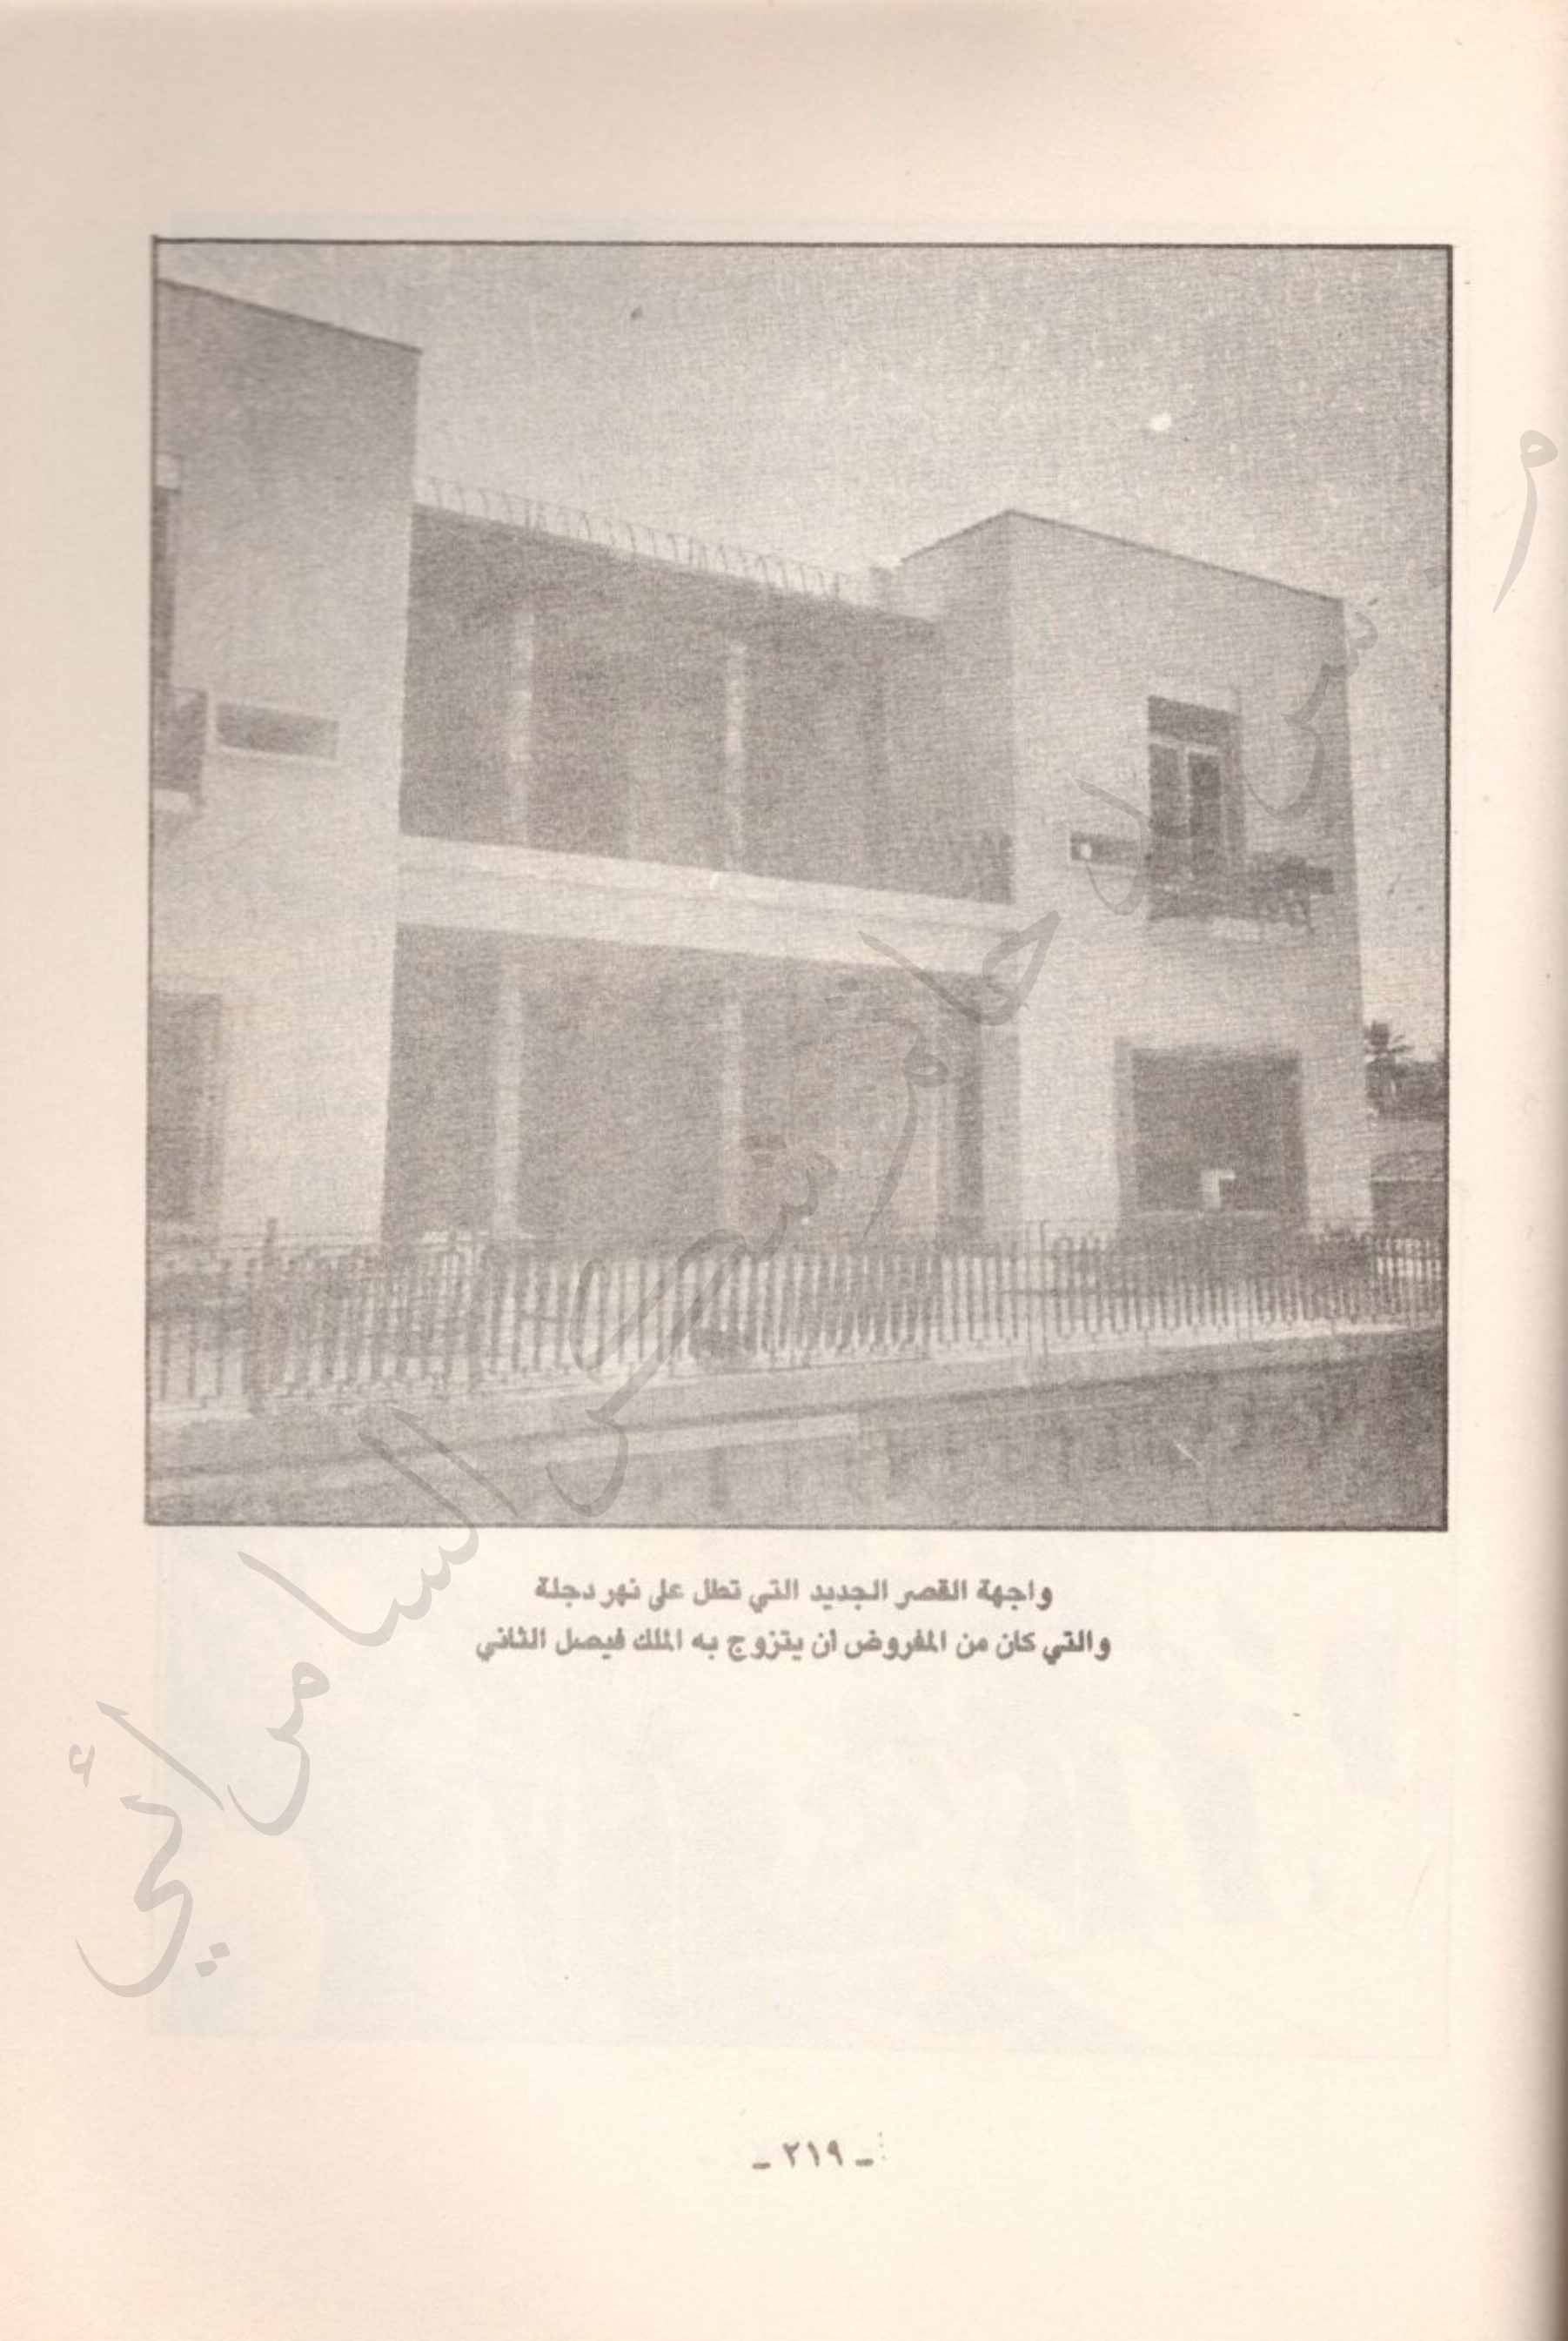 واجهة القصر الجديد التي تطل على نهر دجلة
والتي كان من المفروض أن يتزوج به الملك فيصل الثاني
ـ ٢١٩ ـ
السامرائي